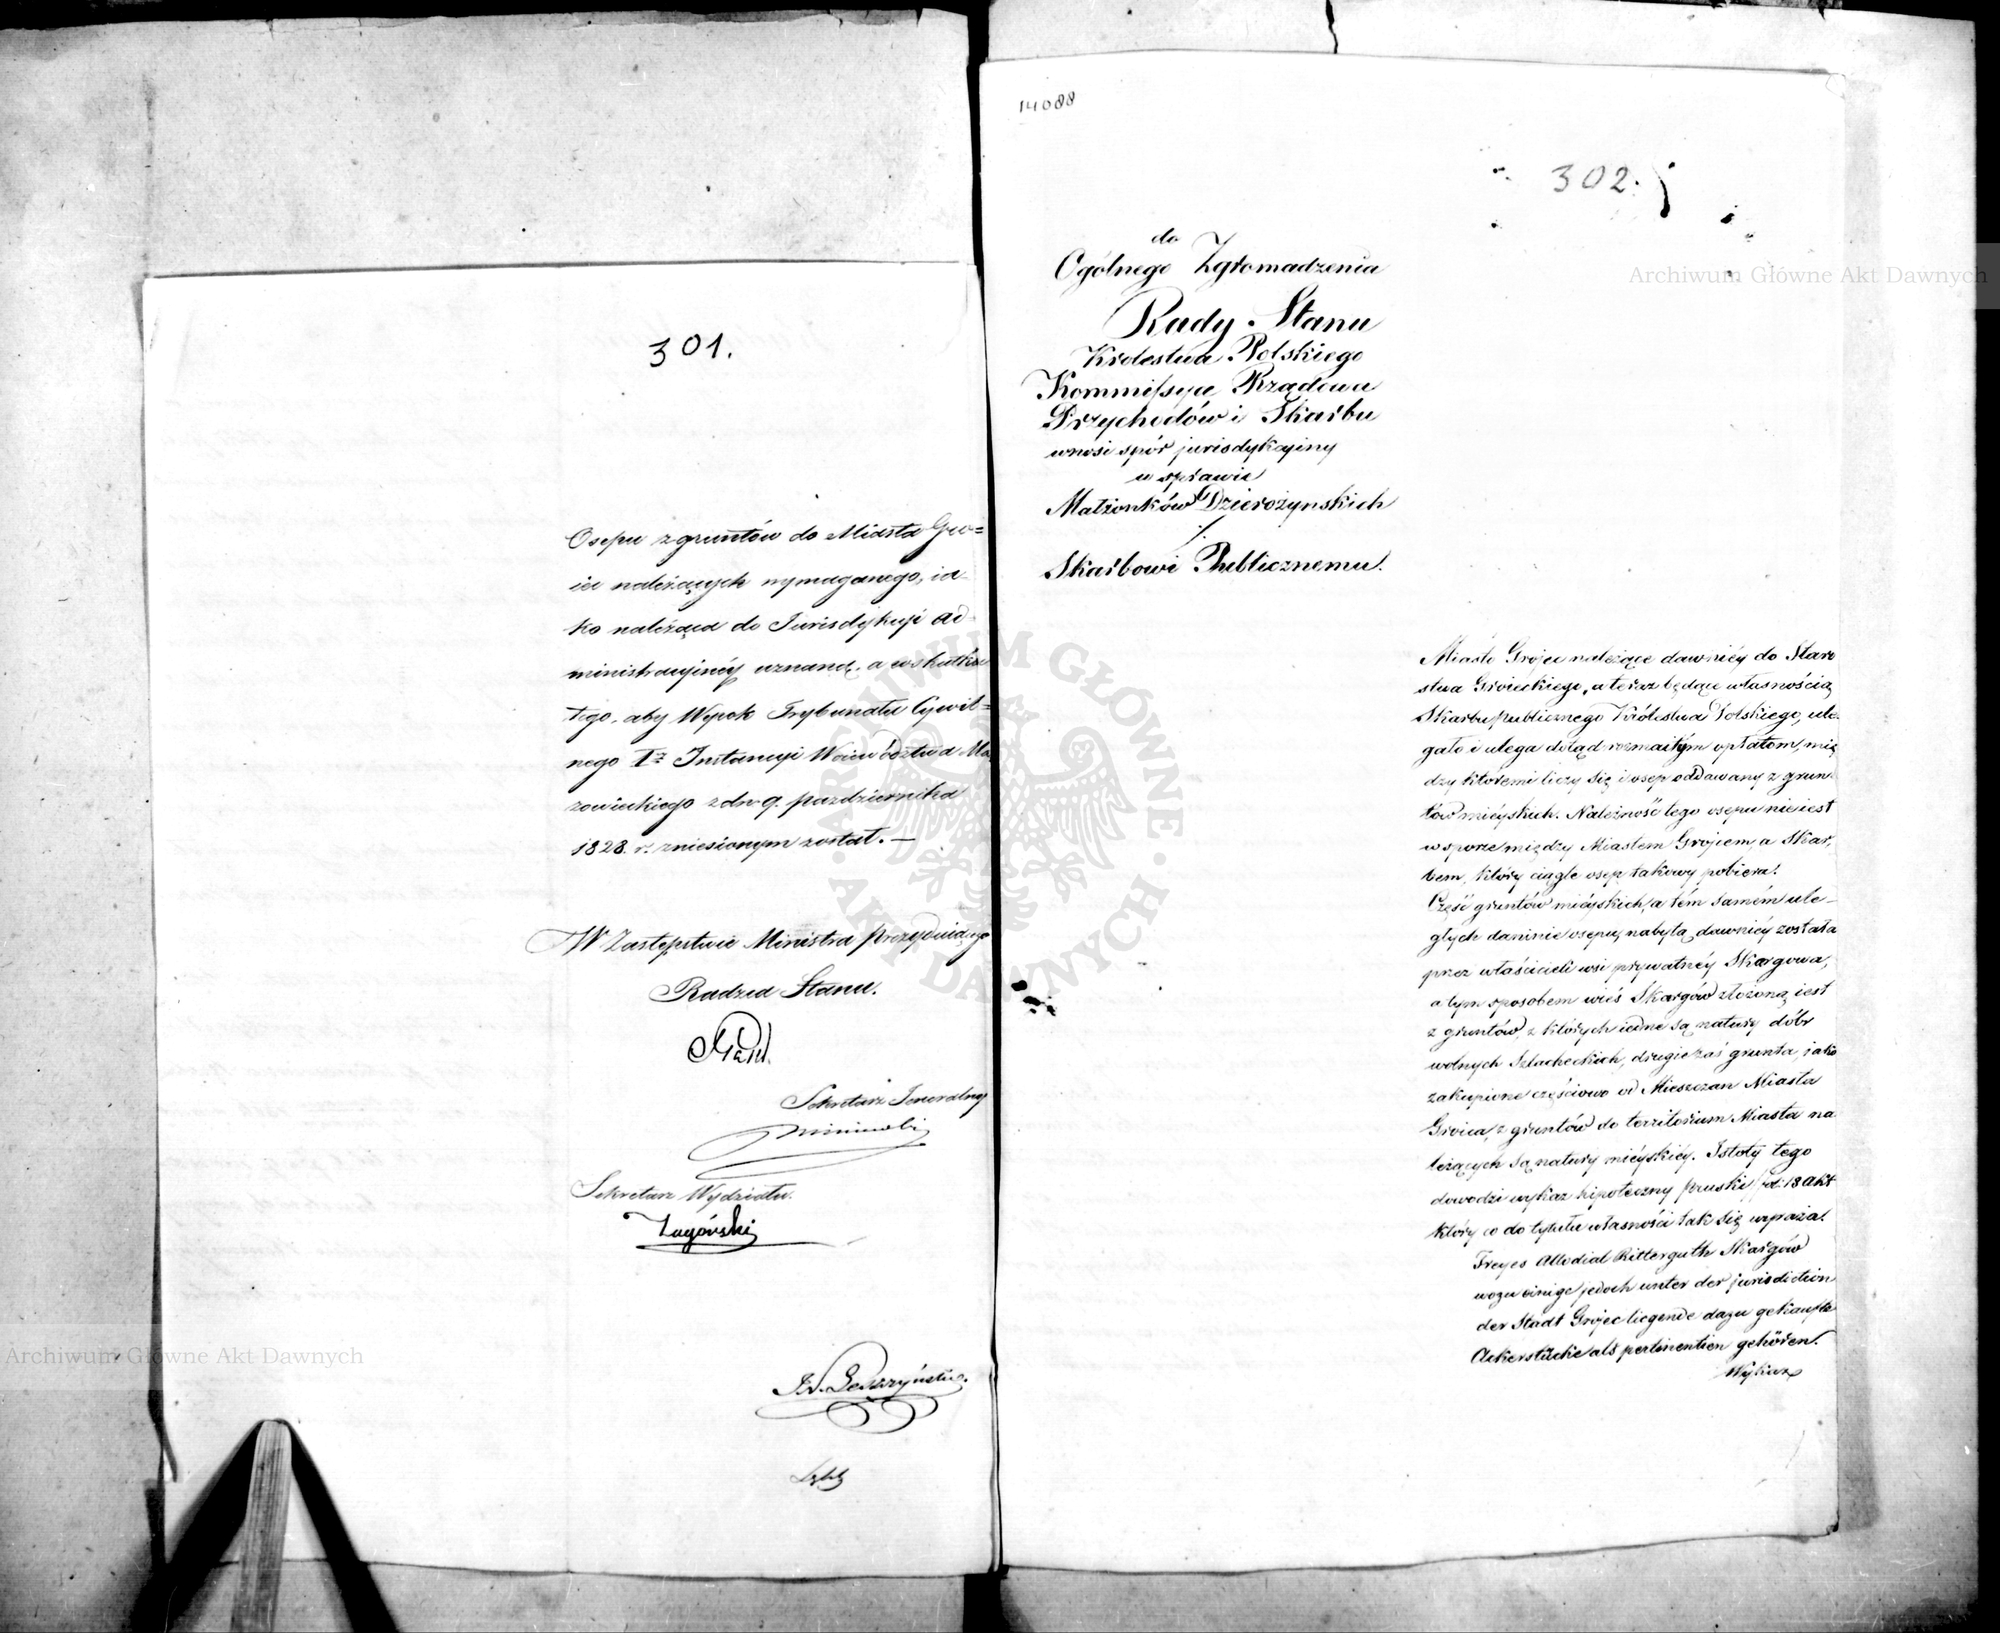 301.
Osepu z gruntów do Miasta Gro=
ica należących wymaganego, ia-
ko należąca do Jurisdykcji ad-
ministracyjnéy uznaną, a w skutku
tego, aby Wyrok Trybunału Cywil=
nego Iéy Instancyi Woiewództwa Ma
zowieckiego z dn. 9. pazdziernika
1828. r. zniesionym został. —
W Zastępstwie Ministra Prezyduiącego
Radzca Stanu.
Sekretarz Jeneralny
Sekretarz Wydziału.
Zagórski
14088
302.
do
Ogólnego Zgromadzenia
Rady Stanu
Królestwa Polskiego
Kommissya Rządowa
Przychodów i Skarbu
wnosi spór jurisdykcyiny
w sprawie
Małżonków Dzierożynskich
Skarbowi Publicznemu.
Miasto Groiec należące dawniéy do Staro
stwa Groieckiego, a teraz będące własnością
Skarbu publicznego Królestwa Polskiego, ule-
gało i ulega dotąd rozmaitym opłatom, mię
dzy któremi liczy się i osep oddawany z grun-
tów mieyskich. Należność tego osepu nie iest
w sporze między Miastem Grojcem, a Skar,
bem, który ciągle osep takowy pobiera.
Część gruntów mieyskich, a tém samém ule-
głych daninie osepu, nabytą dawniéy została
przez właścicieli wsi prywatnéy Skargowa,
a tym sposobem wieś Skargów złożoną iest
z gruntów, z których iedne są natury dóbr
wolnych Szlacheckich, drugie zaś grunta, jako
zakupione częściowo od Mieszczan Miasta
Groica, z gruntów do territorium Miasta na-
leżących są natury mieyskiéy. Istoty tego
dowodzi wykaz hipoteczny pruski fol: 18 Akt
który co do tytułu własności tak się wyraża.
Freyes Allodial Ritterguth Skargów
wozu einige jedoch unter der jurisdiction
der Stadt Grojec liegende dazu gekaufte
Ackerstücke als pertinentien gehören.
Wykaz
Archiwum Główne Akt Dawnych
Archiwum Główne Akt Dawnych
ARCHIWUM GŁÓWNE · AKT DAWNYCH ·